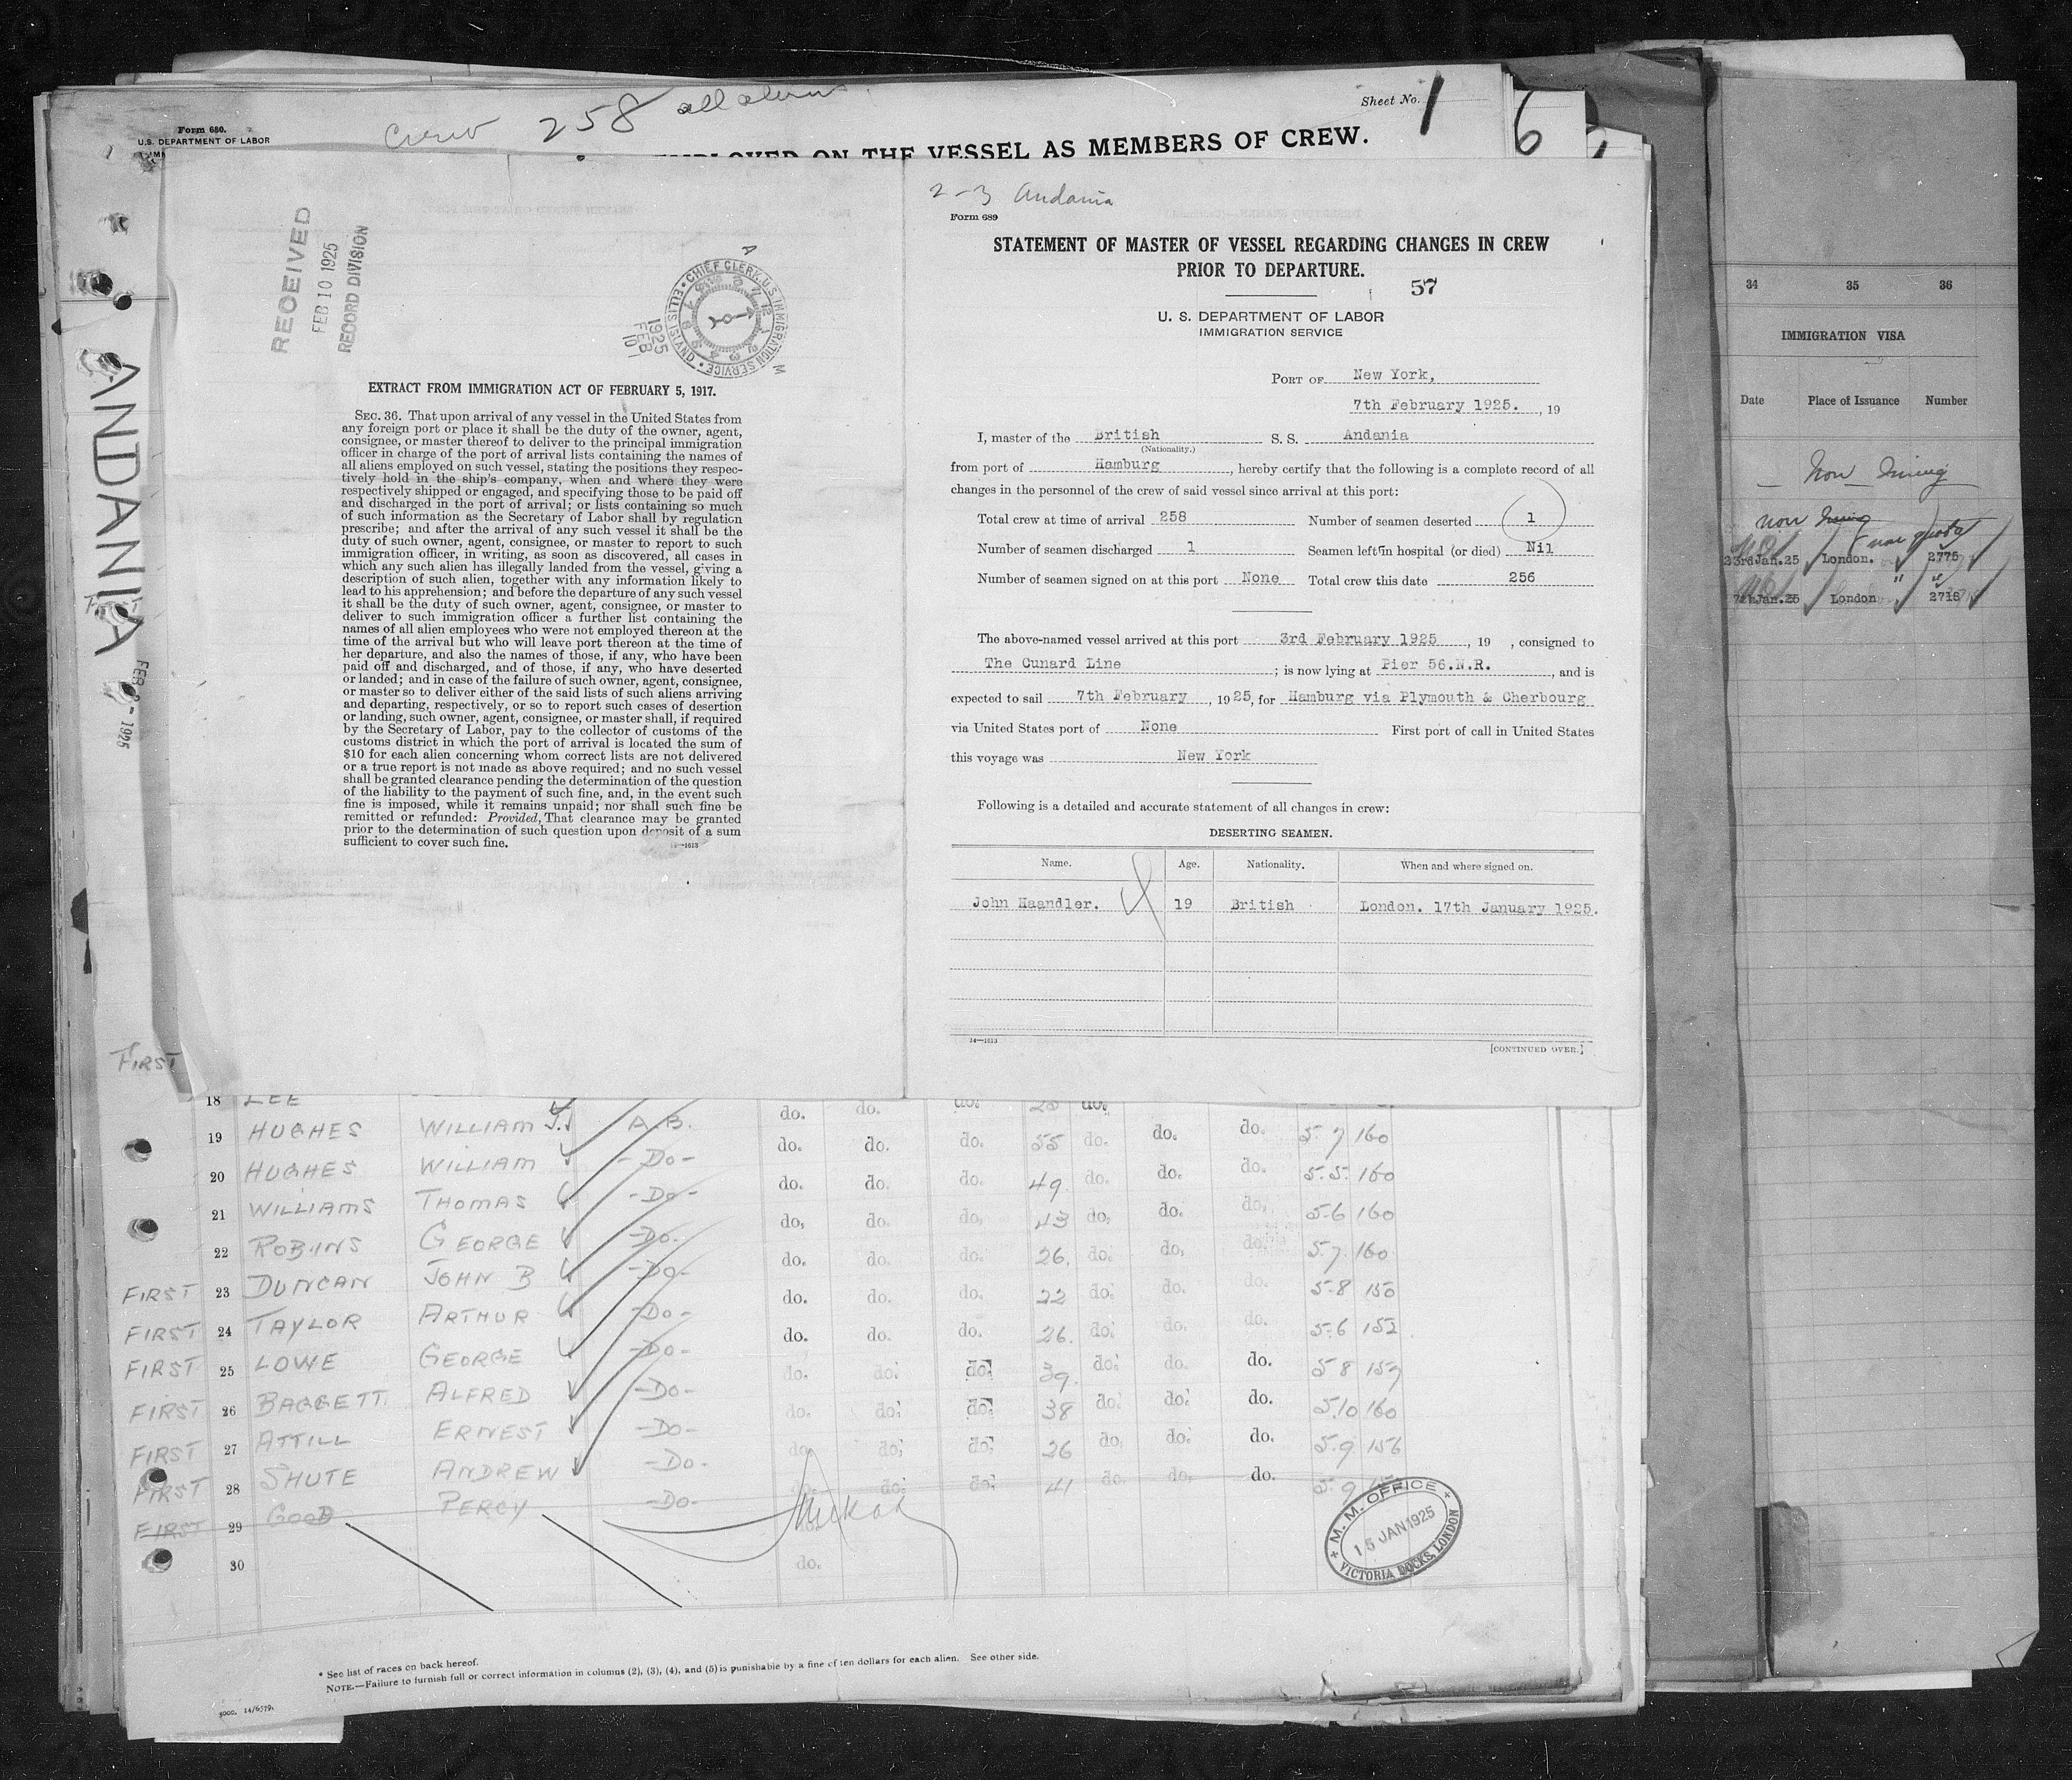 Crew 258 all aliens
Sheet No. 1
6
Form 680.
U.S. DEPARTMENT OF LABOR
EMPLOYED ON THE VESSEL AS MEMBERS OF CREW.
ANDANIA
FEB 2 - 1925
RECEIVED
FEB 10 1925
RECORD DIVISION
CHIEF CLERK, U.S. IMMIGRATION SERVICE • ELLIS ISLAND •
1925
FEB
10
A
M
EXTRACT FROM IMMIGRATION ACT OF FEBRUARY 5, 1917.
SEC. 36. That upon arrival of any vessel in the United States from
any foreign port or place it shall be the duty of the owner, agent,
consignee, or master thereof to deliver to the principal immigration
officer in charge of the port of arrival lists containing the names of
all aliens employed on such vessel, stating the positions they respec-
tively hold in the ship's company, when and where they were
respectively shipped or engaged, and specifying those to be paid off
and discharged in the port of arrival; or lists containing so much
of such information as the Secretary of Labor shall by regulation
prescribe; and after the arrival of any such vessel it shall be the
duty of such owner, agent, consignee, or master to report to such
immigration officer, in writing, as soon as discovered, all cases in
which any such alien has illegally landed from the vessel, giving a
description of such alien, together with any information likely to
lead to his apprehension; and before the departure of any such vessel
it shall be the duty of such owner, agent, consignee, or master to
deliver to such immigration officer a further list containing the
names of all alien employees who were not employed thereon at the
time of the arrival but who will leave port thereon at the time of
her departure, and also the names of those, if any, who have been
paid off and discharged, and of those, if any, who have deserted
or landed; and in case of the failure of such owner, agent, consignee,
or master so to deliver either of the said lists of such aliens arriving
and departing, respectively, or so to report such cases of desertion
or landing, such owner, agent, consignee, or master shall, if required
by the Secretary of Labor, pay to the collector of customs of the
customs district in which the port of arrival is located the sum of
$10 for each alien concerning whom correct lists are not delivered
or a true report is not made as above required; and no such vessel
shall be granted clearance pending the determination of the question
of the liability to the payment of such fine, and, in the event such
fine is imposed, while it remains unpaid; nor shall such fine be
remitted or refunded: Provided, That clearance may be granted
prior to the determination of such question upon deposit of a sum
sufficient to cover such fine.
14—1613
2-3 Andania
Form 689
STATEMENT OF MASTER OF VESSEL REGARDING CHANGES IN CREW
PRIOR TO DEPARTURE.
57
U. S. DEPARTMENT OF LABOR
IMMIGRATION SERVICE
PORT OF New York,
7th February 1925. , 19
I, master of the British S. S. Andania
(Nationality.)
from port of Hamburg , hereby certify that the following is a complete record of all
changes in the personnel of the crew of said vessel since arrival at this port:
Total crew at time of arrival 258 Number of seamen deserted 1
Number of seamen discharged 1 Seamen left in hospital (or died) Nil
Number of seamen signed on at this port None Total crew this date 256
The above-named vessel arrived at this port 3rd February 1925 , 19 , consigned to
The Cunard Line ; is now lying at Pier 56.N.R. , and is
expected to sail 7th February , 1925, for Hamburg via Plymouth & Cherbourg
via United States port of None First port of call in United States
this voyage was New York
Following is a detailed and accurate statement of all changes in crew:
DESERTING SEAMEN.
Name. Age. Nationality. When and where signed on.
John Haandler. 19 British London. 17th January 1925.
14—1613
[CONTINUED OVER.]
34 35 36
IMMIGRATION VISA
Date Place of Issuance Number
23rdJan.25 London. 2775
London 2718
FIRST
18 LEE do. do. do. 25 do.
19 HUGHES WILLIAM J. A.B. do. do. do. 55 do. do. do. 5-7 160
20 HUGHES WILLIAM -Do- do. do. do. 49 do. do. do. 5-5 160
21 WILLIAMS THOMAS -Do- do. do. do. 43 do. do. do. 5-6 160
22 ROBINS GEORGE -Do- do. do. do. 26. do. do. do. 5-7 160
FIRST 23 DUNCAN JOHN B -Do- do. do. do. 22 do. do. do. 5-8 150
FIRST 24 TAYLOR ARTHUR -Do- do. do. do. 26. do. do. do. 5-6 152
FIRST 25 LOWE GEORGE -Do- do. do. do. 39. do. do. do. 5-8 157
FIRST 26 BAGGETT ALFRED -Do- do. do. do. 38 do. do. do. 5.10 160
FIRST 27 ATTILL ERNEST -Do- do. do. do. 26 do. do. do. 5-9 156
FIRST 28 SHUTE ANDREW -Do- do. do. do. 41 do. do. do. 5-9
FIRST 29 GOOD PERCY -Do-
30 do.
M. M. OFFICE
15 JAN 1925
VICTORIA DOCKS, LONDON
* See list of races on back hereof.
NOTE.—Failure to furnish full or correct information in columns (2), (3), (4), and (5) is punishable by a fine of ten dollars for each alien. See other side.
14/6579.